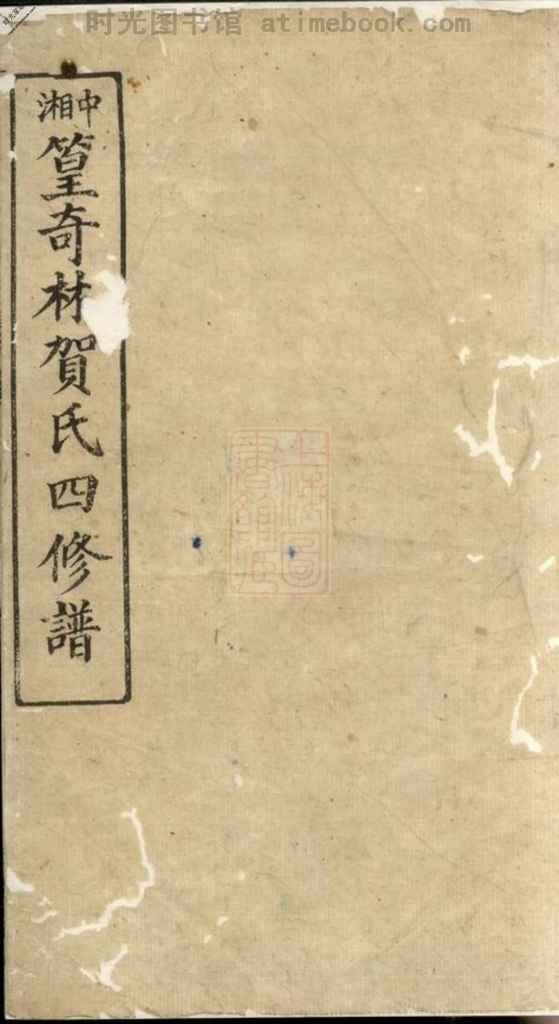 时光图书馆 atimebook.com
中湘
篁奇材賀氏四修譜